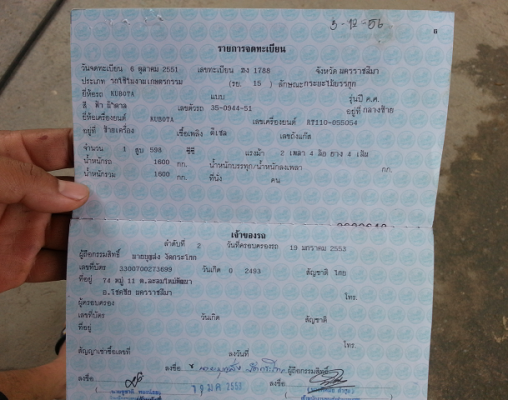 3-12-56
รายการจดทะเบียน
วันจดทะเบียน 6 ตุลาคม 2551 เลขทะเบียน ตง 1788 จังหวัด นครราชสีมา
ประเภท รถใช้ในงานเกษตรกรรม (รย. 15) ลักษณะ กระบะไม้บรรทุก
ยี่ห้อรถ KUBOTA แบบ รุ่นปี ค.ศ.
สี ฟ้า เลขตัวรถ 35-0944-51 อยู่ที่ กลางซ้าย
ยี่ห้อเครื่องยนต์ KUBOTA เลขเครื่องยนต์ RT110-055054
อยู่ที่ ซ้ายเครื่อง เชื้อเพลิง ดีเซล เลขถังแก๊ส
จำนวน 1 สูบ 598 ซีซี แรงม้า 2 เพลา 4 ล้อ ยาง 4 เส้น
น้ำหนักรถ 1600 กก. น้ำหนักบรรทุก/น้ำหนักลงเพลา กก.
น้ำหนักรวม 1600 กก. ที่นั่ง คน
เจ้าของรถ
ลำดับที่ 2 วันที่ครอบครองรถ 19 มกราคม 2553
ผู้ถือกรรมสิทธิ์
เลขที่บัตร 3300700273699 วันเกิด 0 2493 สัญชาติ ไทย
ที่อยู่ 74 หมู่ 11
อ.โชคชัย นครราชสีมา โทร.
ผู้ครอบครอง
เลขที่บัตร วันเกิด สัญชาติ
ที่อยู่
โทร.
สัญญาเช่าซื้อเลขที่ ลงวันที่
ลงชื่อ ผู้ถือกรรมสิทธิ์
ลงชื่อ ลงชื่อ
19 ม.ค. 2553